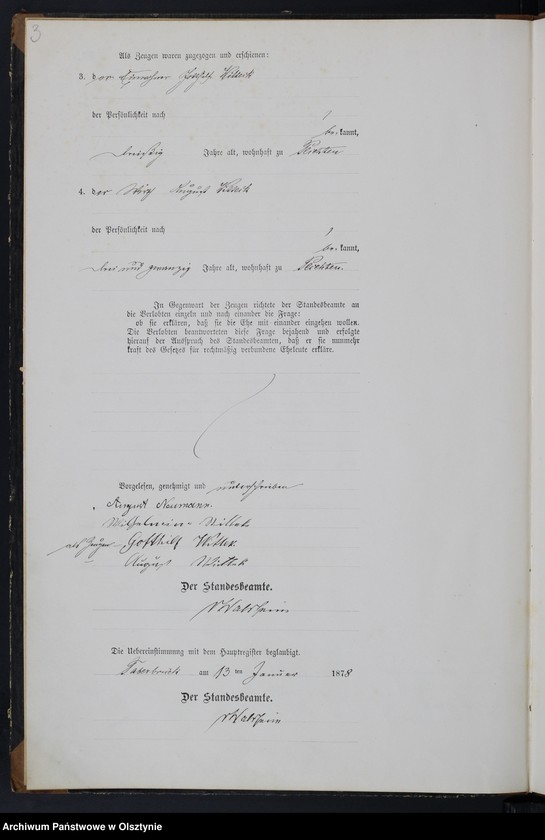 3
Als Zeugen waren zugezogen und erschienen:
3. der Einwohner Gotthilf Willek
der Persönlichkeit nach
bekannt,
dreißig Jahre alt, wohnhaft zu
4. der Wirth August Willek
der Persönlichkeit nach
bekannt,
drei und zwanzig Jahre alt, wohnhaft zu
In Gegenwart der Zeugen richtete der Standesbeamte an
die Verlobten einzeln und nach einander die Frage:
ob sie erklären, daß sie die Ehe mit einander eingehen wollen.
Die Verlobten beantworteten diese Frage bejahend und erfolgte
hierauf der Ausspruch des Standesbeamten, daß er sie nunmehr
kraft des Gesetzes für rechtmäßig verbundene Eheleute erkläre.
Vorgelesen, genehmigt und unterschrieben
August Neumann.
Wilhelmine Willek
als Zeugen Gotthilf Willek
August Willek
Der Standesbeamte.
Die Uebereinstimmung mit dem Hauptregister beglaubigt.
Taberbrück am 13 ten Januar 1878
Der Standesbeamte.
Archiwum Państwowe w Olsztynie